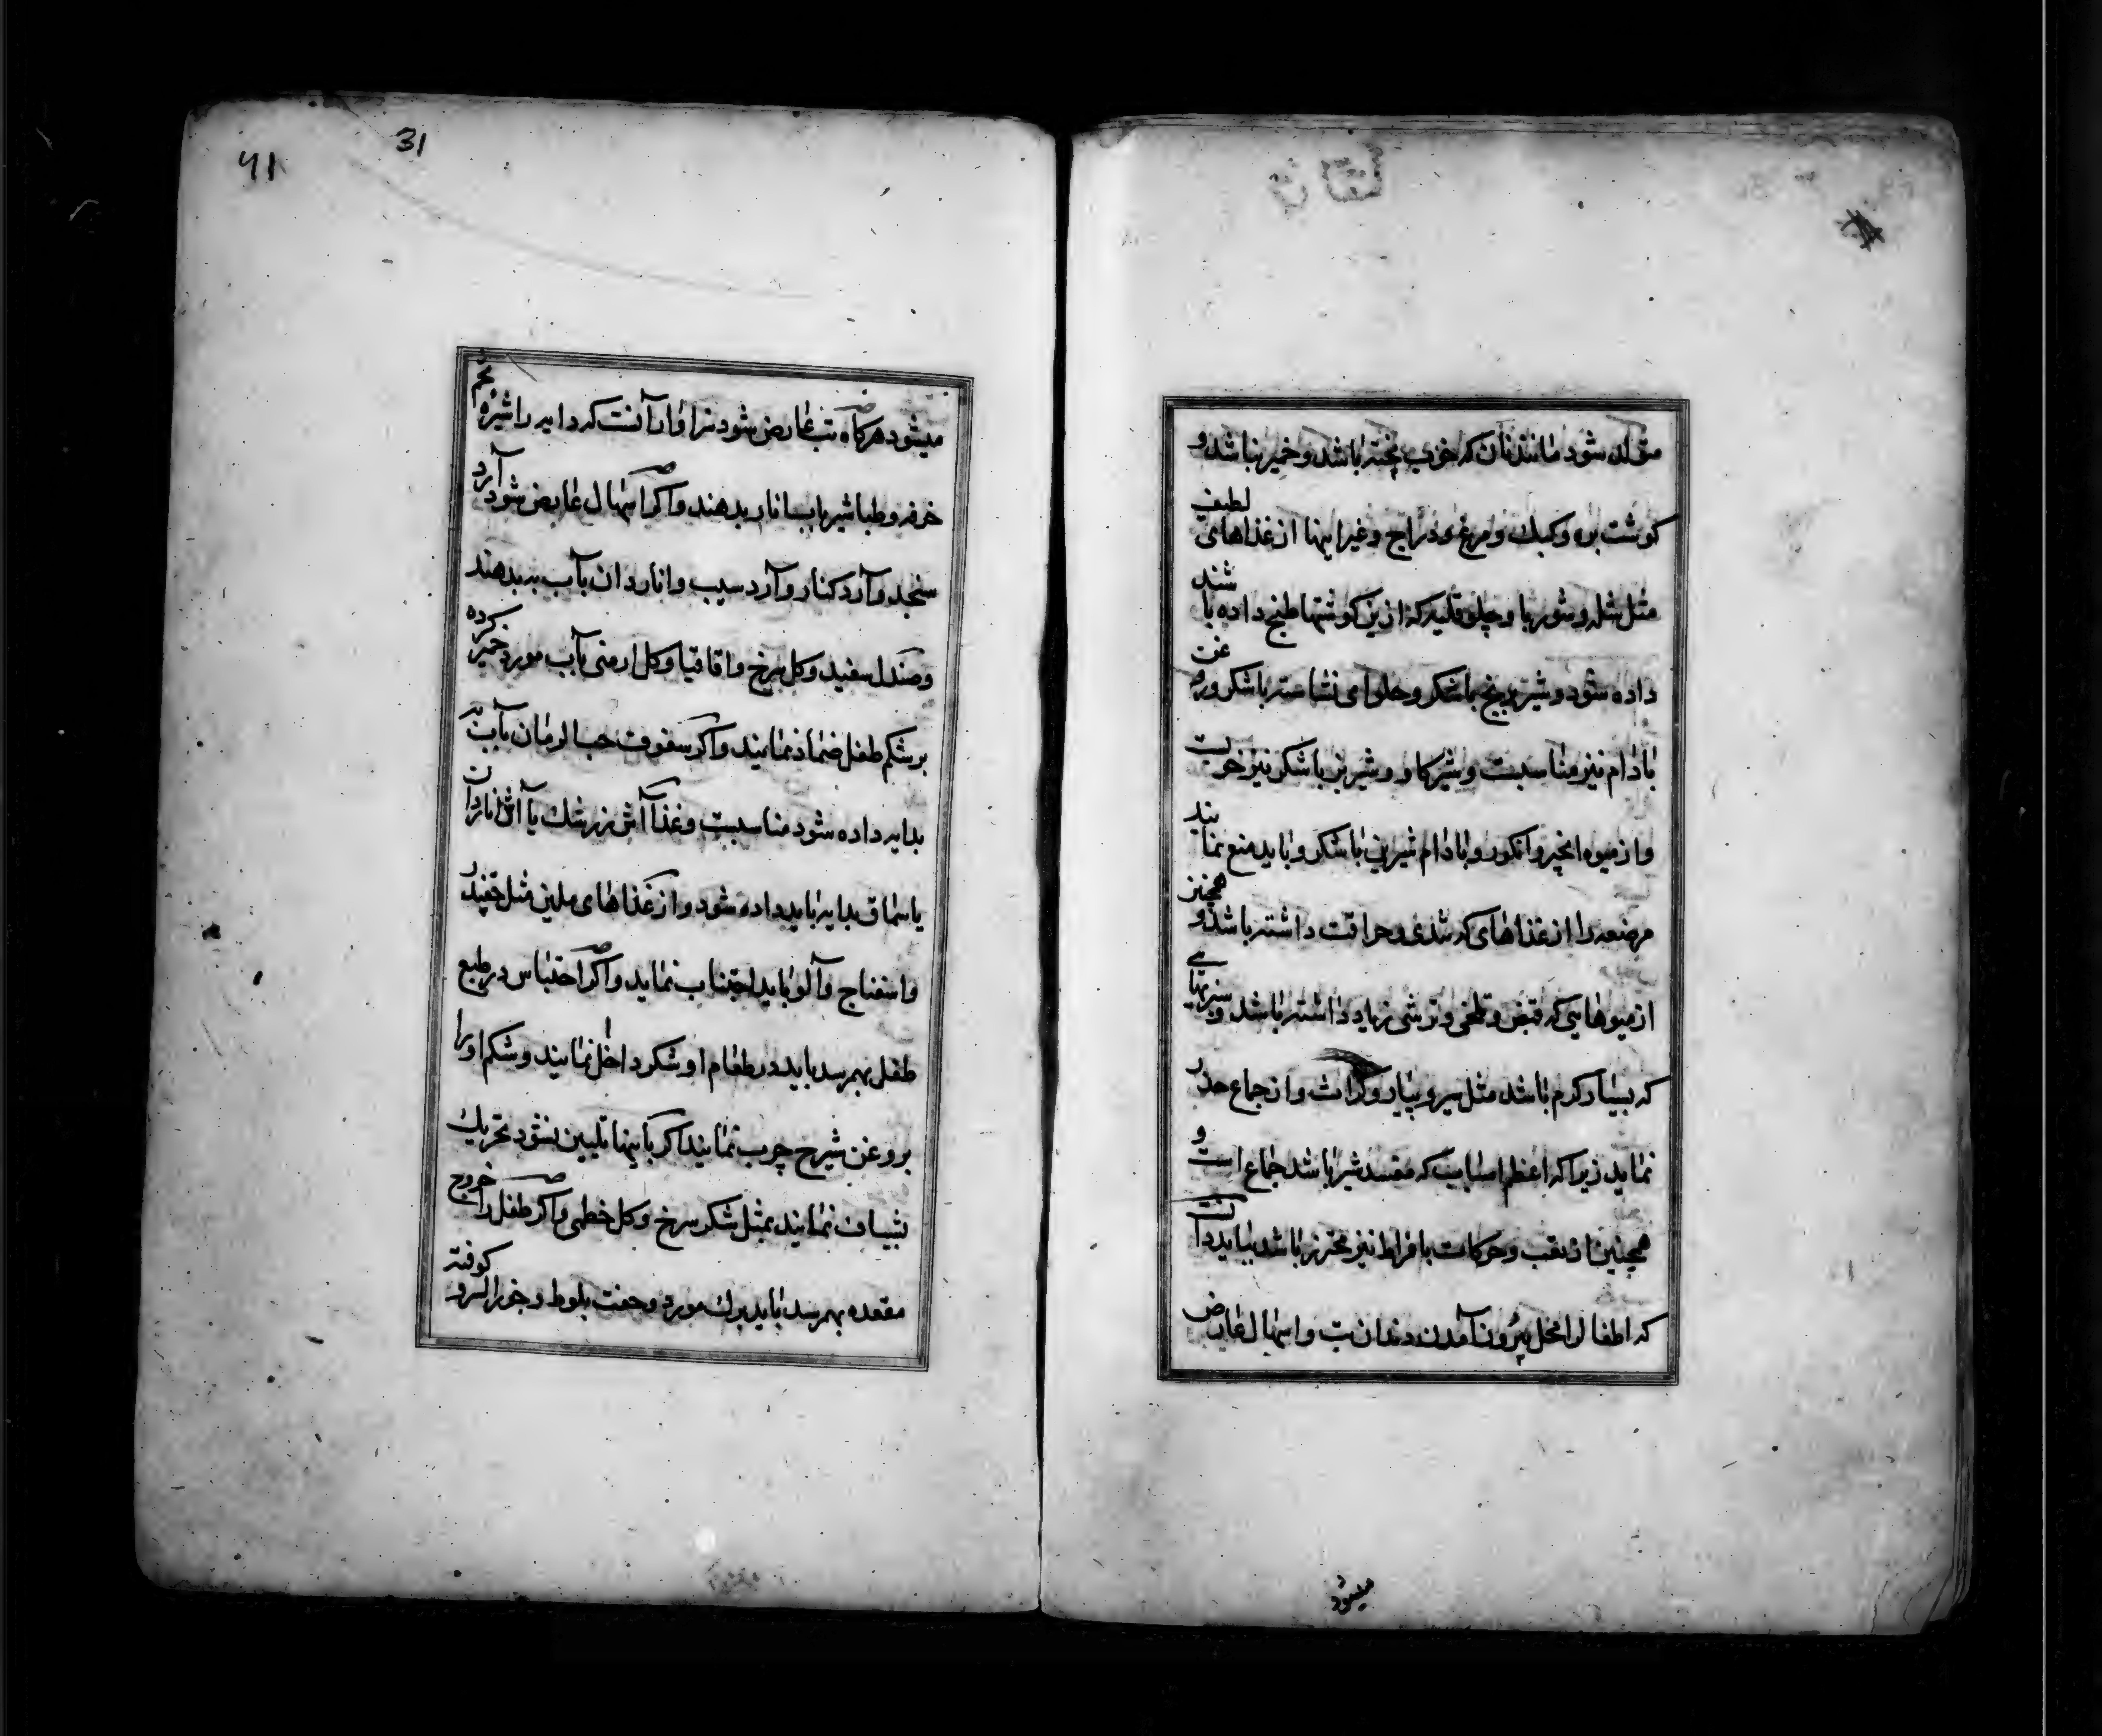 متولد شود مانند نان که خوب پخته باشد و خمیر نباشد و
کوشت بره و کبك و مرغ و دراج و غیر اینها از غذاهای لطیف
مثل شله و شوربا و چلو قلیه که ازین کوشتها طبخ داده باشند
داده شود و شیر برنج باشکر و حلوای نشاسته باشکر و روغن
بادام نیز مناسبست و شیر کاو و شیر بز باشکر نیز خوبست
و از میوه انجیر و انکور و بادام شیرین باشکر و باید منع نمایند
مرضعه را از غذاهای که تندی و حرافت داشته باشد و همچنین
از میوهایی که قبض و تلخی و ترشی زیاد داشته باشد و سبزیهایی
که بسیار کرم باشد مثل سیر و پیاز و کراث و از جماع حذر
نماید زیرا که اعظم اسبابیکه مفسد شیر باشد جماع است و
همچنین از تعب و حرکات بافراط نیز محترز باشد بباید دانست
که اطفال را محل بیرون آمدن دندان تب و اسهال عارض
میشود
31
41
میشود هرکاه تب عارض شود سزاوار آنست که دایه را شیره تخم
خرفه و طباشیر باب انار بدهند و اکر اسهال عارض شود آرد
سنجد و آرد کنار و آرد سیب و اناردان بآب به بدهند
و صندل سفید و کل سرخ و اقاقیا و کل ارمنی بآب مورد خمیر کرده
بر شکم طفل ضماد نمایند و اکر سفوف حب الرمان بآب به
بدایه داده شود مناسبست و غذا آش زرشك یا آش اناردان
یا سماق بدایه باید داده شود و از غذاهای ملین مثل چقندر
و اسفناج و آلو باید اجتناب نماید و اکر احتباس در طبع
طفل بهمرسد باید در طعام او شکر داخل نمایند و شکم او را
بروغن شیرج چرب نمایند اکر باینها تلیین نشود تحریك
بشیاف نمایند بمثل شکر سرخ و کل خطمی و اکر طفل را خروج
مقعده بهمرسد باید برك مورد و جفت بلوط و جوز السرو کوفته